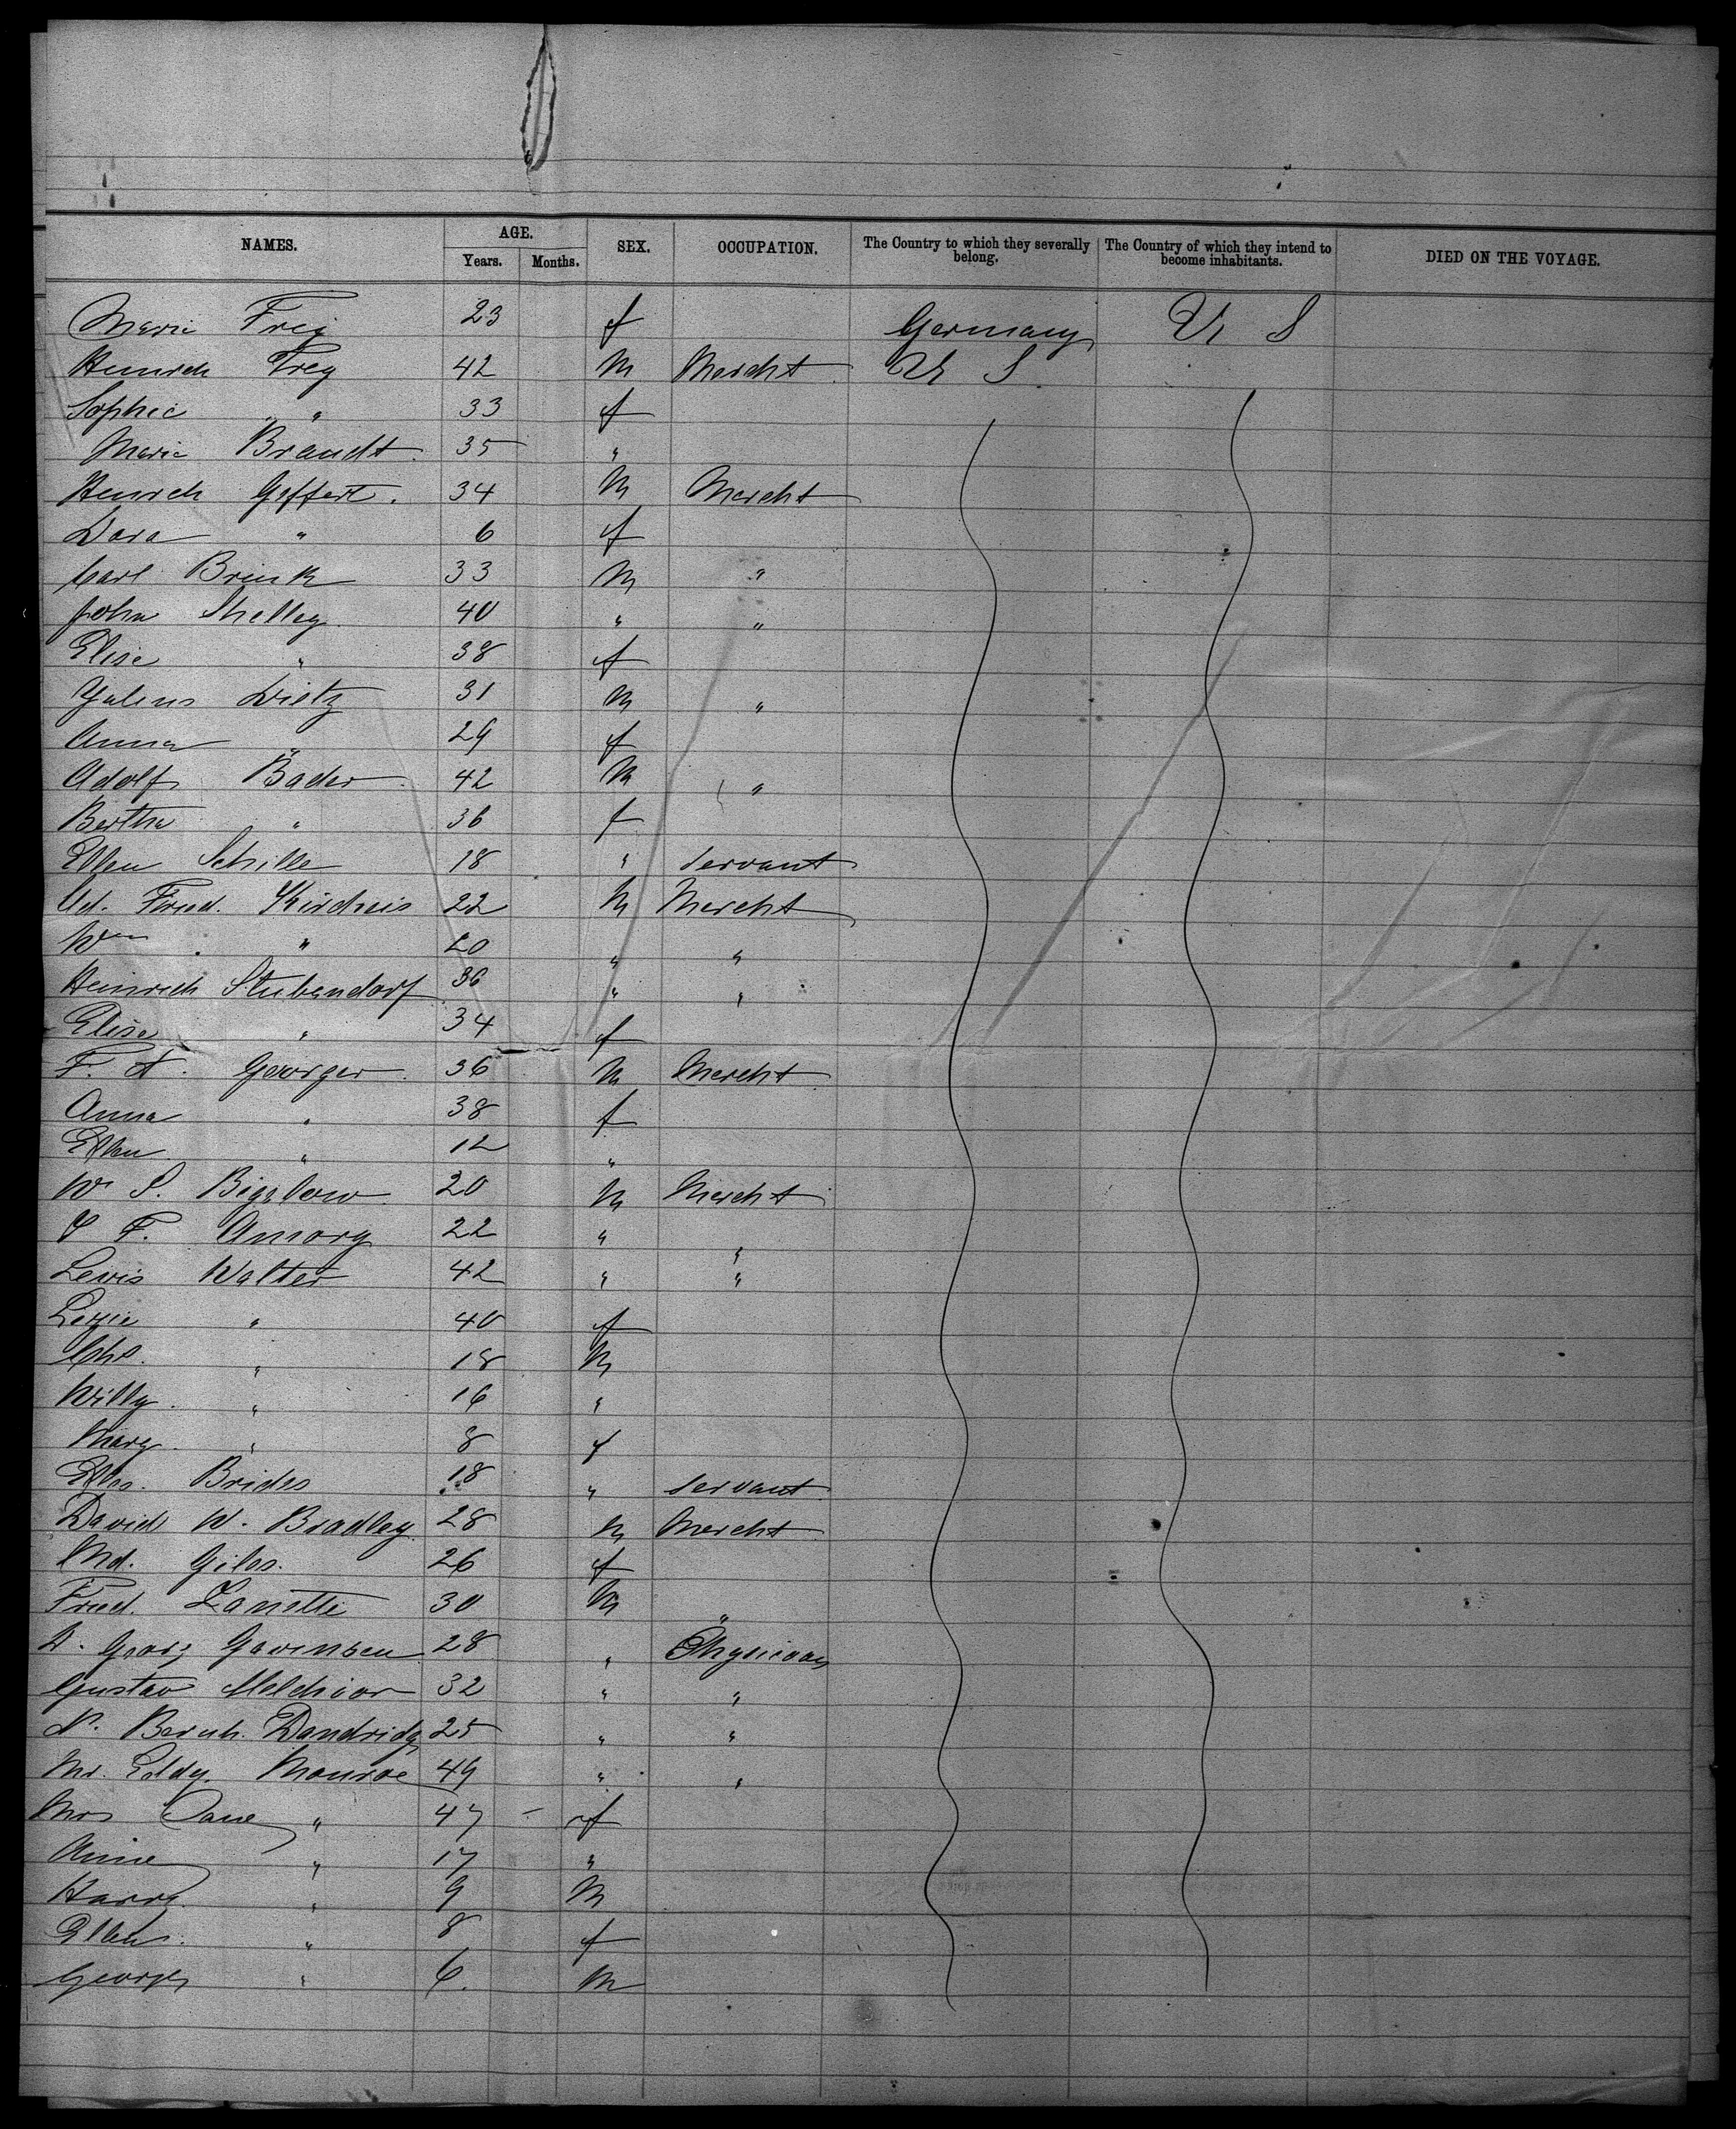 NAMES. AGE. SEX. OCCUPATION. The Country to which they severally belong. The Country of which they intend to become inhabitants. DIED ON THE VOYAGE.
Years. Months.
Marie Frey 23 f Germany U S
Heinrich Frey 42 M Mercht U S
Sophie " 33 f
Marie Brandt 35 "
Heinrich Geffert. 34 M Mercht
Dora " 6 f
Carl Brink 33 M "
John Shelley 40 " "
Elise " 38 f
Julius Dietz 31 M "
Anna " 29 f
Adolf Bader 42 M "
Bertha " 36 f
Ellen Schille 18 " servant
Ad. Fried. 22 M Mercht
Wm " 20 " "
Heinrich Stubendorf 36 " "
Elise " 34 f
F. A. Goerger 36 M Mercht
Anna " 38 f
Ellen " 12 "
W S. Bigelow 20 M Mercht
F. Amory 22 " "
Lewis Walter 42 " "
Lizzie " 40 f
Chs. " 18 M
Willy " 16 "
Mary " 8 f
Brides 18 " servant
David W. Bradley 28 M Mercht
Md. Giles. 26 f
Fried. Zanetti 30 M "
D. Georg 28 " Physician
Gustav Melchior 32 " "
Bernh. Dandridg 25 " "
Mr. Eddy. Monroe 49 " "
Mrs Jane " 47 - f
Annie " 17 "
Harry " 9 M
Ellen " 8 f
George " 6. M